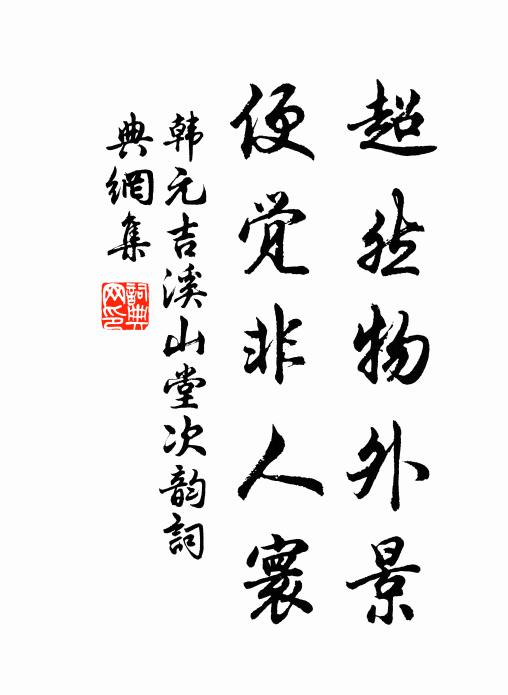 超然物外景
便觉非人寰
韩元吉溪山堂次韵詞
典網集
詞典网印